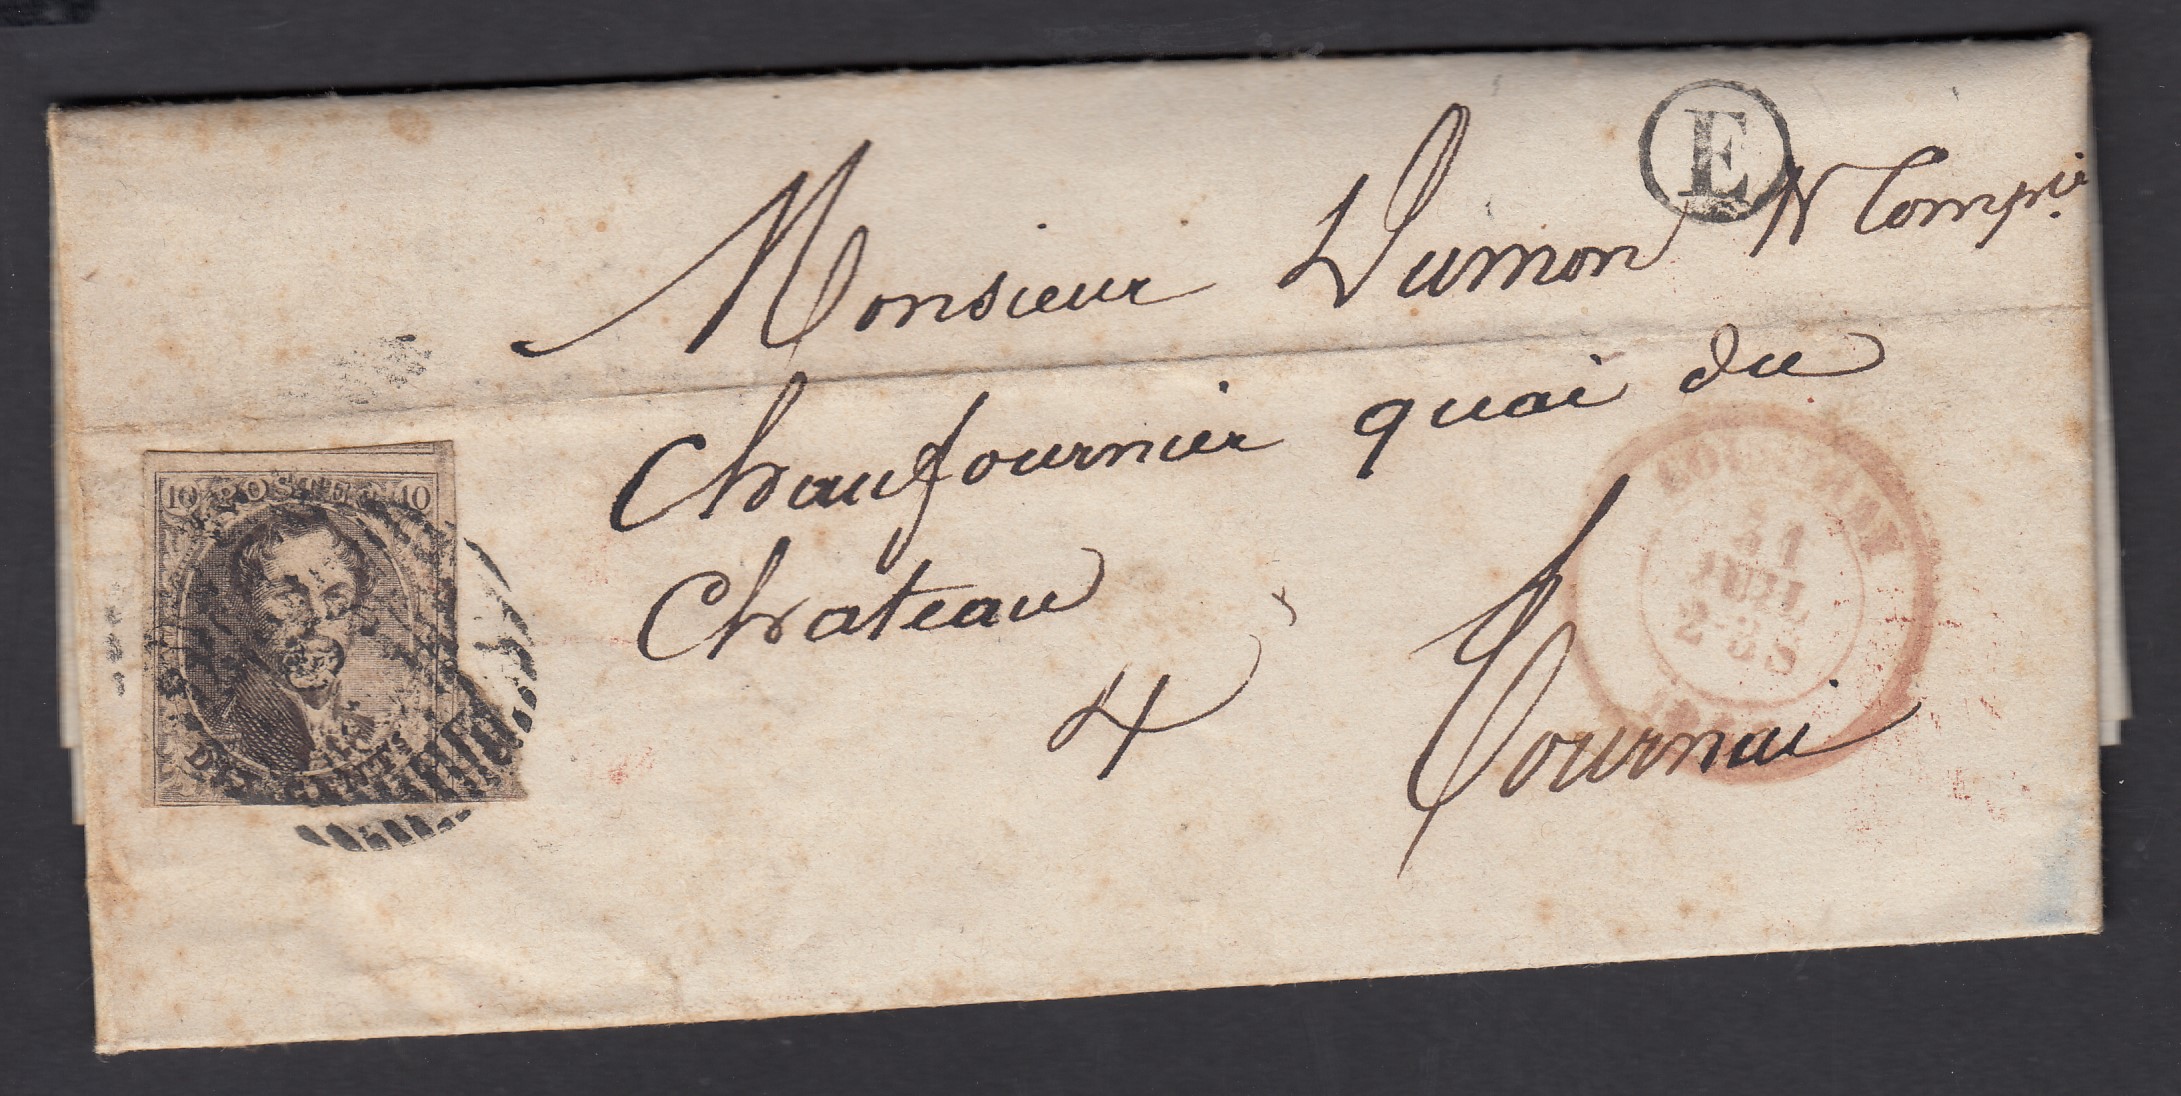 E
Monsieur Dumon & Compie
Chaufournier quai du
Chateau
4
Tournai
10 POSTES 10
DIX CENTS
31
JUIL
2-3S